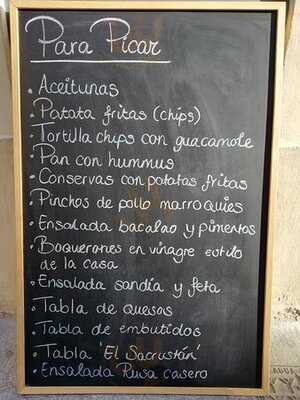 Para Picar
• Aceitunas
• Patata fritas (chips)
• Tortilla chips con guacamole
• Pan con hummus
• Conservas con patatas fritas
• Pinchos de pollo marroquies
• Ensalada bacalao y pimientos
• Boquerones en vinagre estilo
de la casa
• Ensalada sandía y feta
• Tabla de quesos
• Tabla de embutidos
• Tabla 'El Sacristán'
• Ensalada Rusa casero